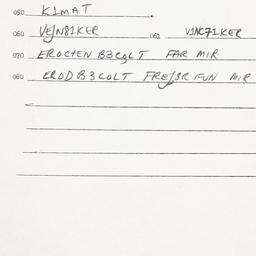 050 K1MAT
060 VEJN81KER 061 V1NC71KER
070 EROCTEN B3C9LT FAR MIR
080 ERODB3COLT FREJ3R FUN MIR